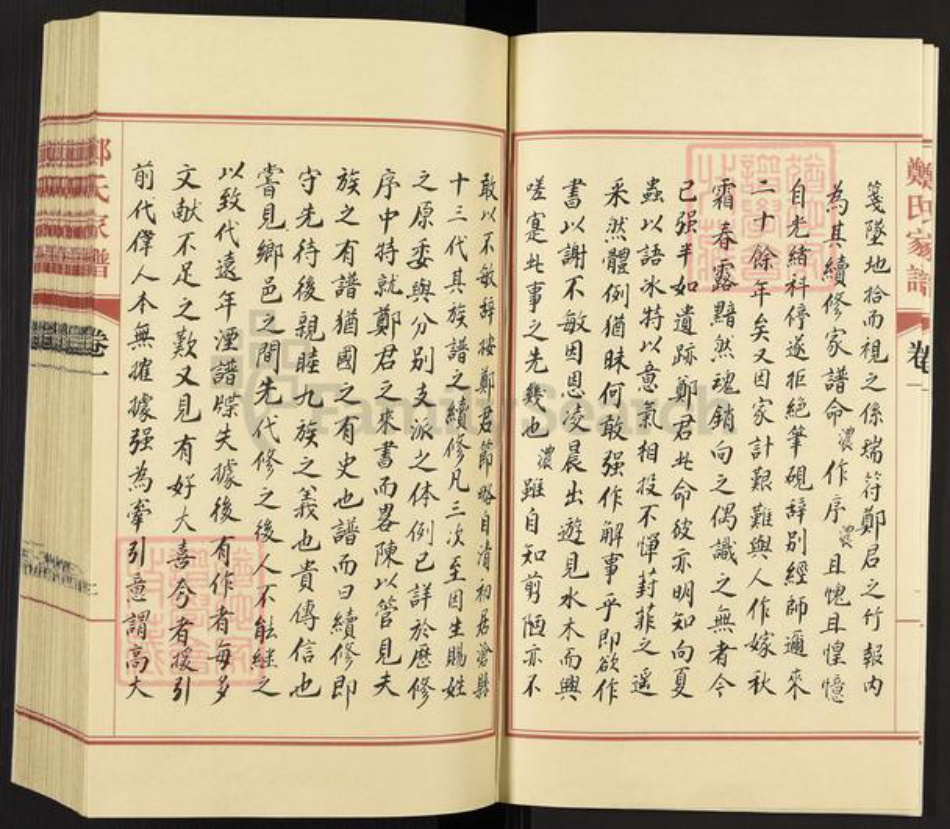 箋墜地拾而視之係瑞符鄭君之竹報内
為其續修家譜命濃作序濃且愧且惶憶
自光緒科停遂拒絕筆硯辞别經師邇來
二十餘年矣又因家計艱難與人作嫁秋
霜春露黯然魂銷向之偶識之無者今
已强半如遺跡鄭君此命彼亦明知向夏
蟲以語冰特以意氣相投不憚葑菲之遥
采然體例猶昧何敢强作解事乎即欲作
書以謝不敏因思凌晨出遊見水木而興
嗟寔此事之先幾也濃雖自知剪陋亦不
敢以不敏辞按鄭君節略自清初居滄縣
十三代其族譜之續修凡三次至因生賜姓
之原委與分别支派之体例已詳於歷修
序中特就鄭君之來書而畧陳以管見夫
族之有譜猶國之有史也譜而曰續修即
守先待後親睦九族之義也貴傳信也
嘗見鄉邑之間先代修之後人不能継之
以致代遠年湮譜牒失據後有作者每多
文献不足之歎又見有好大喜夸者援引
前代偉人本無摧據强為牽引意謂高大
鄭氏家譜
卷一
二
鄭氏家譜
卷
FamilySearch